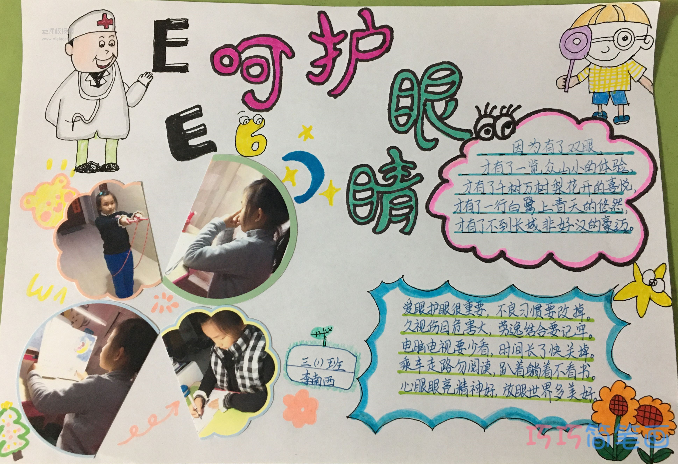 E
E
呵护眼睛
因为有了双眼
才有了一览众山小的体验
才有了千树万树梨花开的喜悦,
才有了一行白鹭上青天的悠然
才有了不到长城非好汉的豪迈。
爱眼护眼很重要,不良习惯要改掉。
久视伤目危害大,劳逸结合要记牢。
电脑电视要少看,时间长了快关掉。
乘车走路勿阅读,趴着躺着不看书。
心眼眼亮精神好,放眼世界多美好
三(1)班
巧巧简笔画